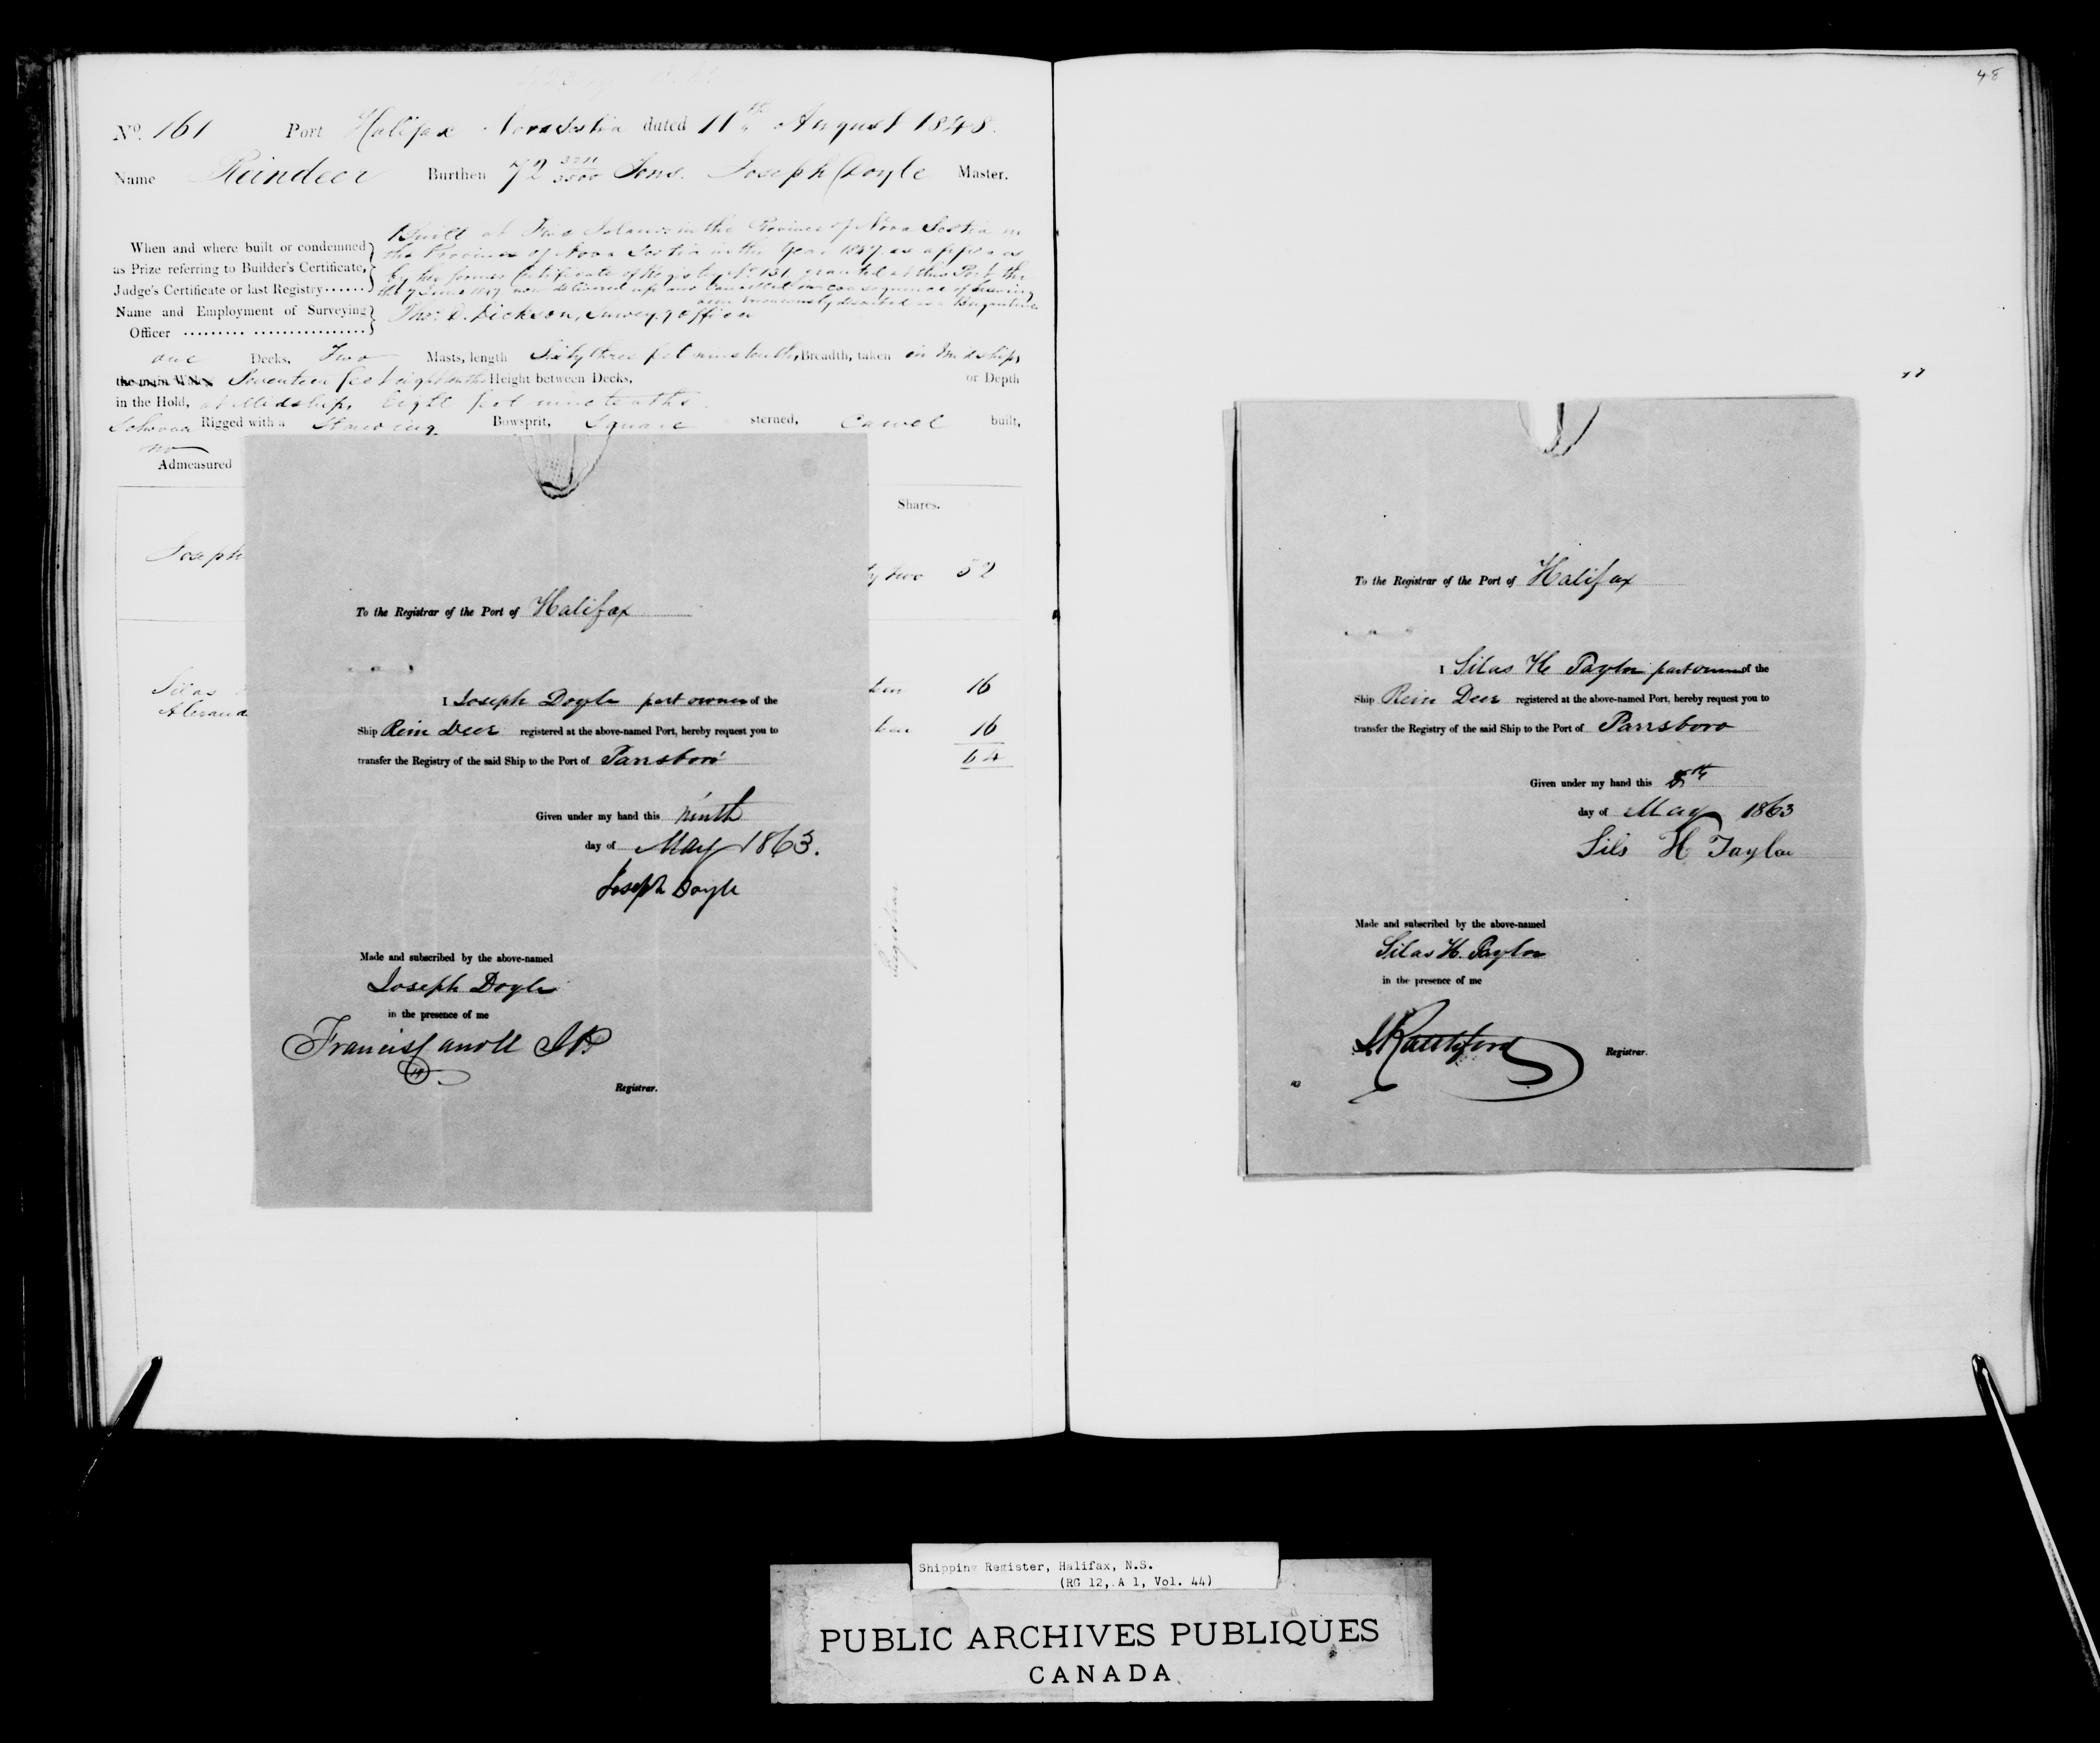 48
No. 161 Port Halifax Nova Scotia dated 11th August 1848.
Name Reindeer Burthen 72 Tons. Joseph Doyle Master.
When and where built or condemned
as Prize referring to Builder's Certificate,
Judge's Certificate or last Registry......
Built at Five Islands in the Province of Nova Scotia in
the Province of Nova Scotia in the Year 1847 as appears
by her former Certificate of Registry No. 131, granted at this Port the
now delivered up and Cancelled in consequence of having
been erroneously described as a Brigantine
Name and Employment of Surveying
Officer
Thos. D. Dickson, Survey.g Officer
one Decks, Two Masts, length Sixty three feet nine tenths, Breadth, taken in Midships
the main Wales Seventeen feet eight tenths Height between Decks, or Depth
in the Hold, at Midships Eight feet nine tenths.
Schooner Rigged with a Standing Bowsprit, Square sterned, Carvel built,
no
Admeasured
Shares.
Joseph
ty two 32
Silas
teen 16
Alexand
teen 16
64
Registrar
To the Registrar of the Port of Halifax
I Joseph Doyle part owner of the
Ship Rein Deer registered at the above-named Port, hereby request you to
transfer the Registry of the said Ship to the Port of Parrsboro'
Given under my hand this ninth
day of May 1863.
Joseph Doyle
Made and subscribed by the above-named
Joseph Doyle
in the presence of me
Francis Carroll J.P.
Registrar.
To the Registrar of the Port of Halifax
I Silas H Taylor part owner of the
Ship Rein Deer registered at the above-named Port, hereby request you to
transfer the Registry of the said Ship to the Port of Parrsboro
Given under my hand this 8th
day of May 1863
Sils H Taylor
Made and subscribed by the above-named
Silas H. Taylor
in the presence of me
Registrar.
Shipping Register, Halifax, N.S.
(RG 12, A 1, Vol. 44)
PUBLIC ARCHIVES PUBLIQUES
CANADA